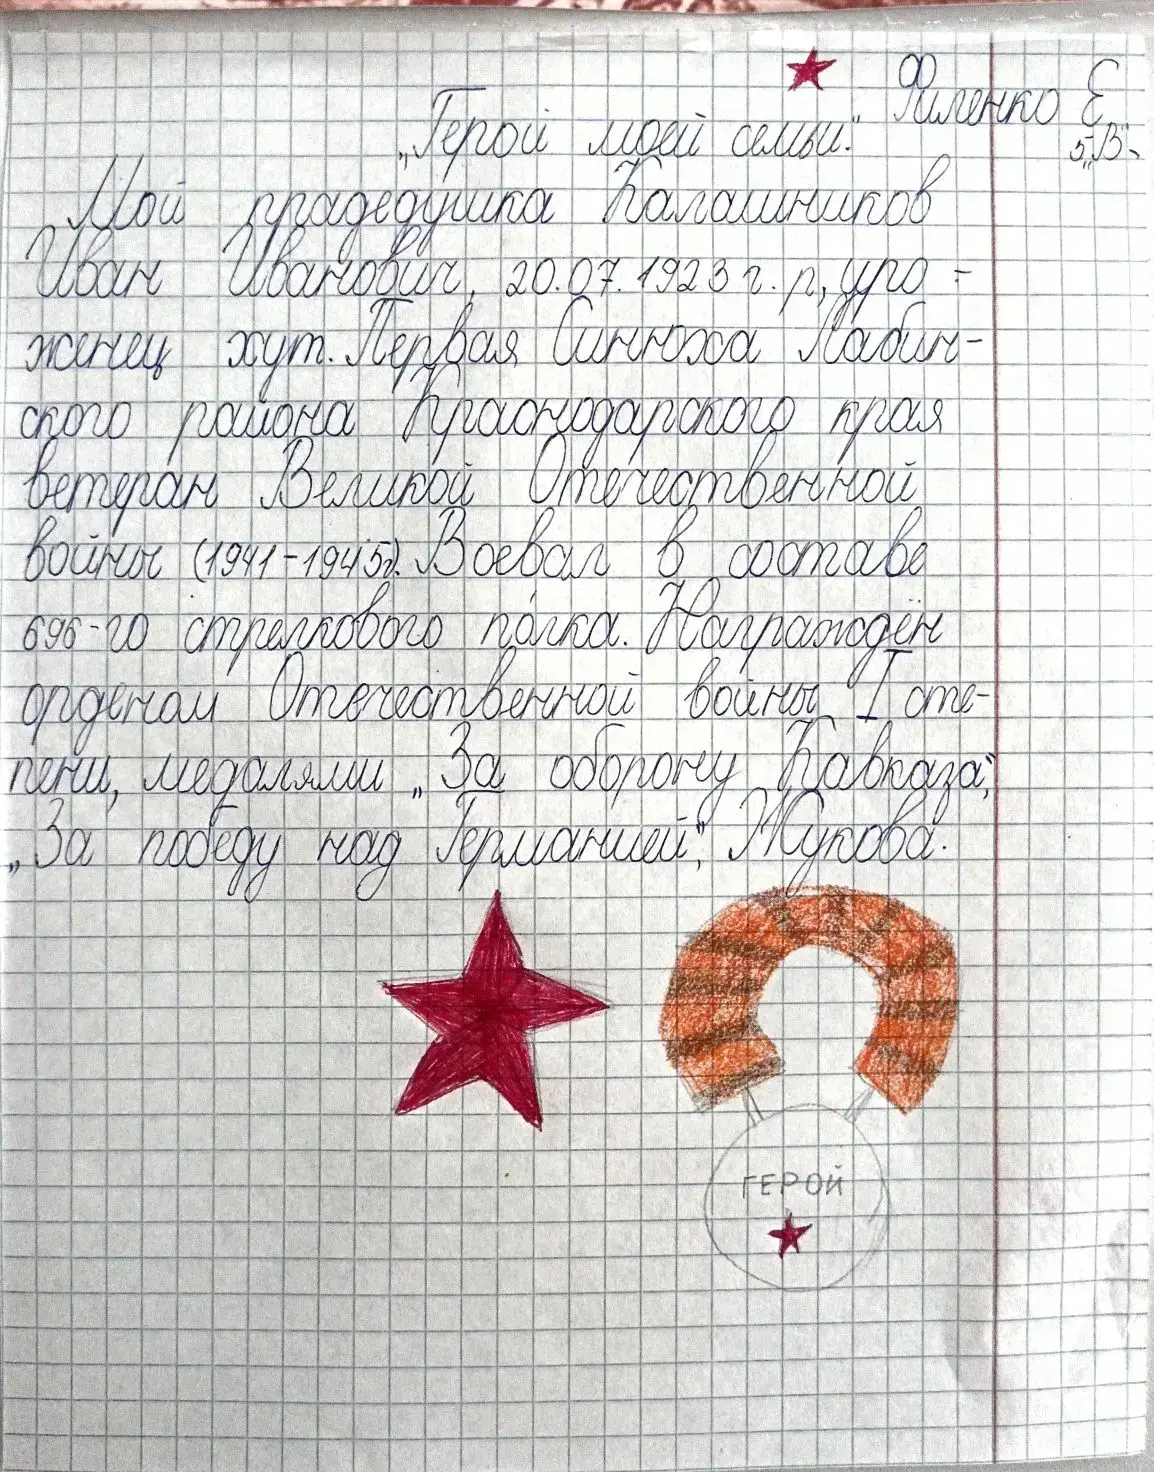 Филенко Е
„Герой моей семьи."
5„В"
Мой прадедушка Калашников
Иван Иванович, 20.07.1923 г. р, уро-
женец хут. Первая Синюха Лабин-
ского района Краснодарского края
ветеран Великой Отечественной
войны (1941-1945г). Воевал в составе
696-го стрелкового полка. Награждён
орденом Отечественной войны I сте-
пени, медалями „За оборону Кавказа",
„За победу над Германией", Жукова.
ГЕРОЙ